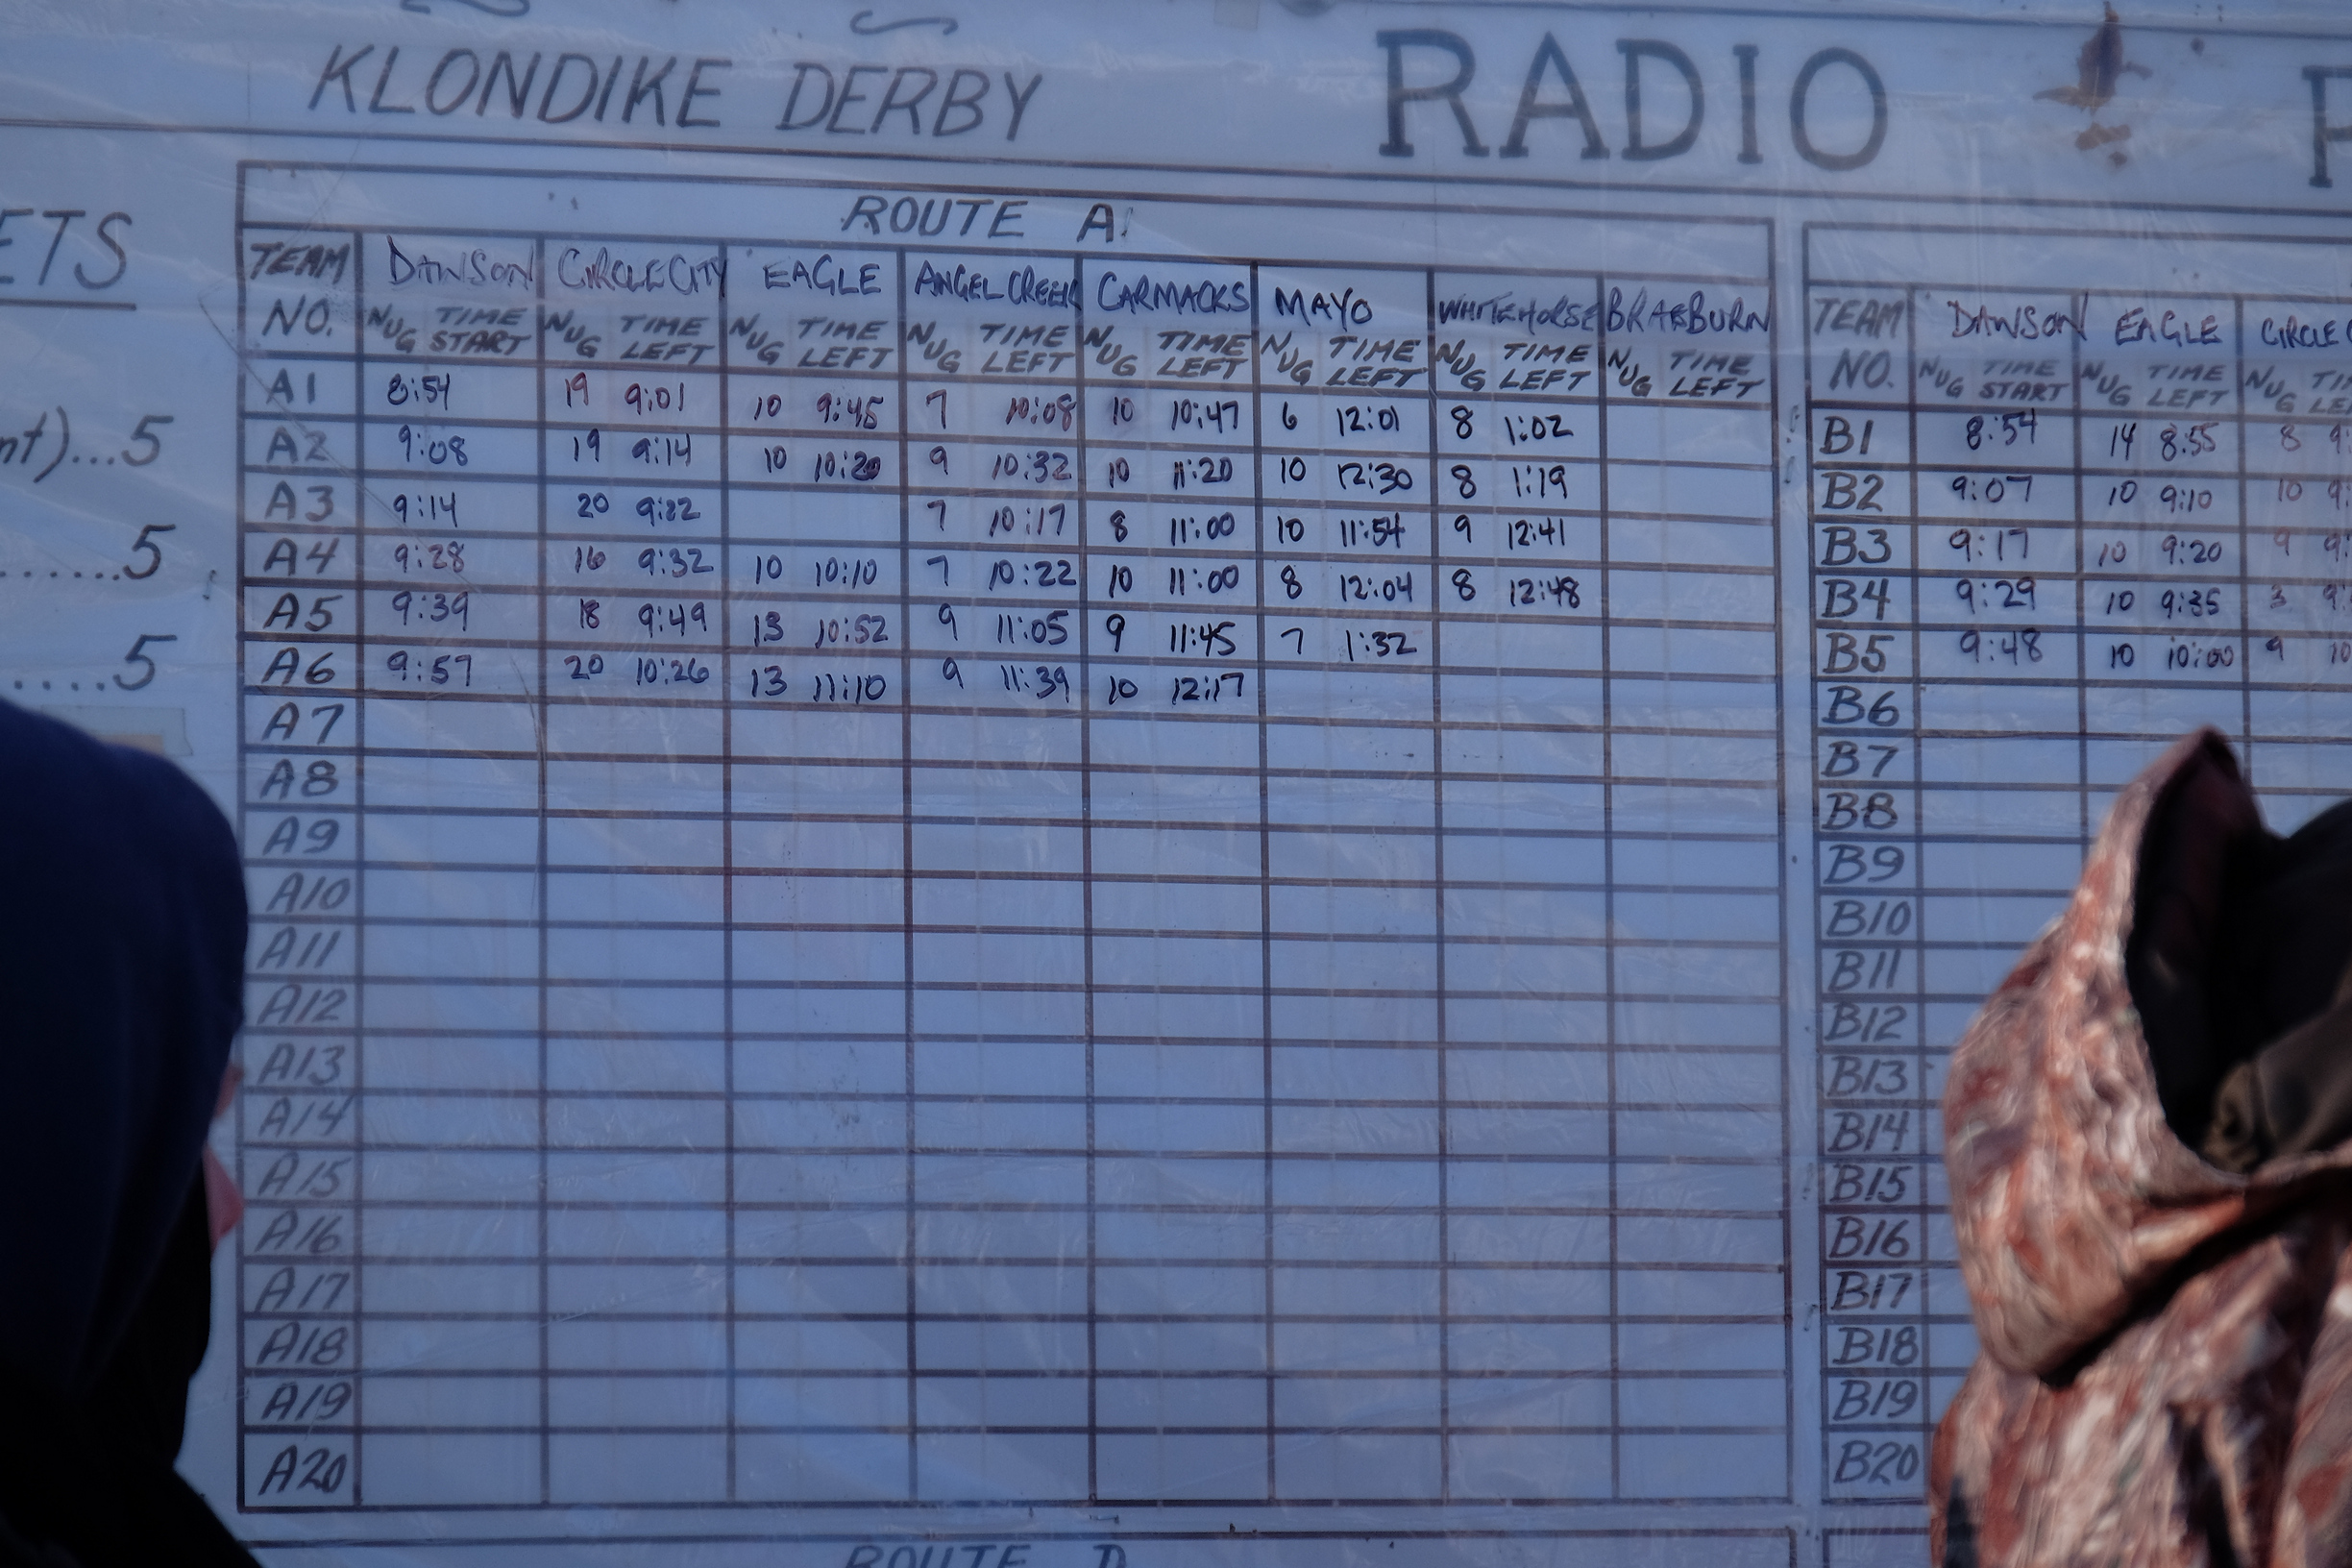 KLONDIKE DERBY RADIO
ETS
nt)...5
......5
....5
ROUTE A
TEAM NO. DAWSON CIRCLE CITY EAGLE ANGEL CREEK CARMACKS MAYO WHITEHORSE BRAEBURN
NUG TIME START NUG TIME LEFT NUG TIME LEFT NUG TIME LEFT NUG TIME LEFT NUG TIME LEFT NUG TIME LEFT NUG TIME LEFT
A1 8:54 19 9:01 10 9:45 7 10:08 10 10:47 6 12:01 8 1:02
A2 9:08 19 9:14 10 10:20 9 10:32 10 11:20 10 12:30 8 1:19
A3 9:14 20 9:22 7 10:17 8 11:00 10 11:54 9 12:41
A4 9:28 16 9:32 10 10:10 7 10:22 10 11:00 8 12:04 8 12:48
A5 9:39 18 9:49 13 10:52 9 11:05 9 11:45 7 1:32
A6 9:57 20 10:26 13 11:10 9 11:39 10 12:17
A7
A8
A9
A10
A11
A12
A13
A14
A15
A16
A17
A18
A19
A20
TEAM NO. DAWSON EAGLE CIRCLE
NUG TIME START NUG TIME LEFT NUG
B1 8:54 14 8:55 8
B2 9:07 10 9:10 10
B3 9:17 10 9:20 9
B4 9:29 10 9:35 3
B5 9:48 10 10:00 9 10
B6
B7
B8
B9
B10
B11
B12
B13
B14
B15
B16
B17
B18
B19
B20
ROUTE D